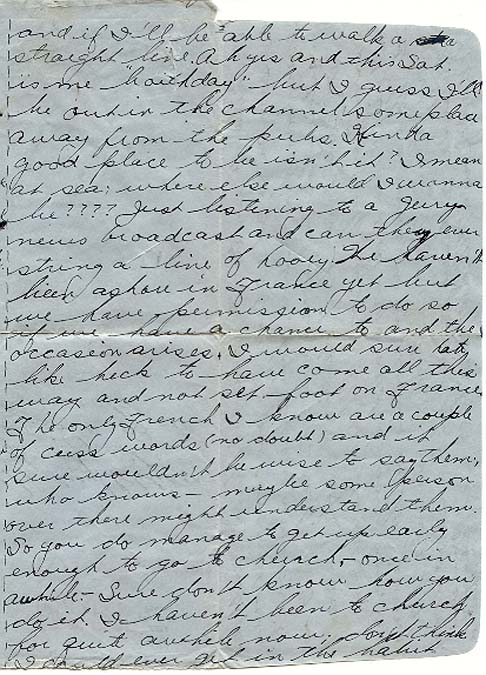 and if I'll be able to walk a
straight line. Ah yes and this Sat.
"is me boithday" but I guess I'll
be out in the channel someplace
away from the pubs. Kinda
good place to be isn't it? I mean
at sea; where else would I wanna
be???? Just listening to a Jerry
news broadcast and can they ever
string a line of hooey. We haven't
been ashore in France yet but
we have permission to do so
if we have a chance to and the
occasion arises. I would sure hate
like heck to have come all this
way and not set foot on France.
The only French I know are a couple
of cuss words (no doubt) and it
sure wouldn't be wise to say them;
who knows - maybe some person
over there might understand them.
So you do manage to get up early
enough to go to church, - once in
awhile - Sure don't know how you
do it. I haven't been to church
for quit awhile now. Don't think
I could ever get in the habit